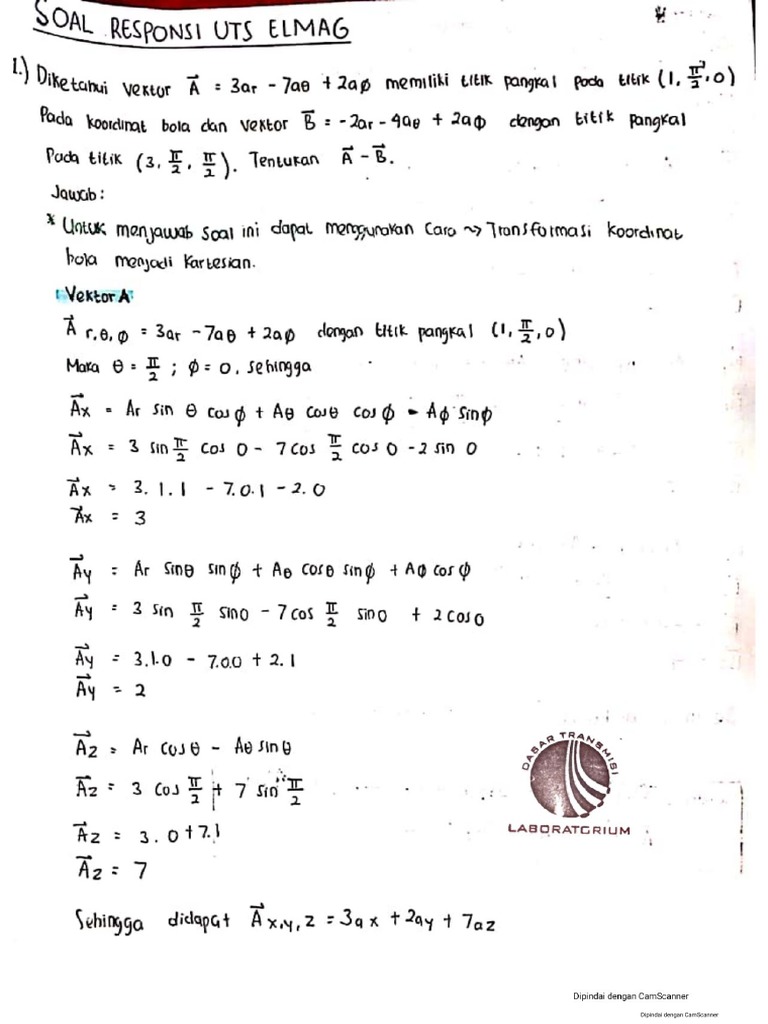 SOAL RESPONSI UTS ELMAG
1.) Diketahui vektor A⃗ = 3ar - 7aθ + 2aφ memiliki titik pangkal pada titik (1, π/2, 0)
Pada koordinat bola dan vektor B⃗ = -2ar - 4aθ + 2aφ dengan titik pangkal
Pada titik (3, π/2, π/2). Tentukan A⃗ - B⃗.
Jawab:
* Untuk menjawab soal ini dapat menggunakan cara ⇝ Transformasi koordinat
bola menjadi kartesian.
Vektor A
A⃗ r,θ,φ = 3ar - 7aθ + 2aφ dengan titik pangkal (1, π/2, 0)
Maka θ = π/2 ; φ = 0, sehingga
A⃗x = Ar sin θ cos φ + Aθ cos θ cos φ - Aφ sin φ
A⃗x = 3 sin π/2 cos 0 - 7 cos π/2 cos 0 - 2 sin 0
A⃗x = 3.1.1 - 7.0.1 - 2.0
A⃗x = 3
A⃗y = Ar sin θ sin φ + Aθ cos θ sin φ + Aφ cos φ
A⃗y = 3 sin π/2 sin 0 - 7 cos π/2 sin 0 + 2 cos 0
A⃗y = 3.1.0 - 7.0.0 + 2.1
A⃗y = 2
A⃗z = Ar cos θ - Aθ sin θ
A⃗z = 3 cos π/2 + 7 sin π/2
A⃗z = 3.0 + 7.1
A⃗z = 7
DASAR TRANSMISI
LABORATORIUM
Sehingga didapat A⃗ x,y,z = 3ax + 2ay + 7az
Dipindai dengan CamScanner
Dipindai dengan CamScanner